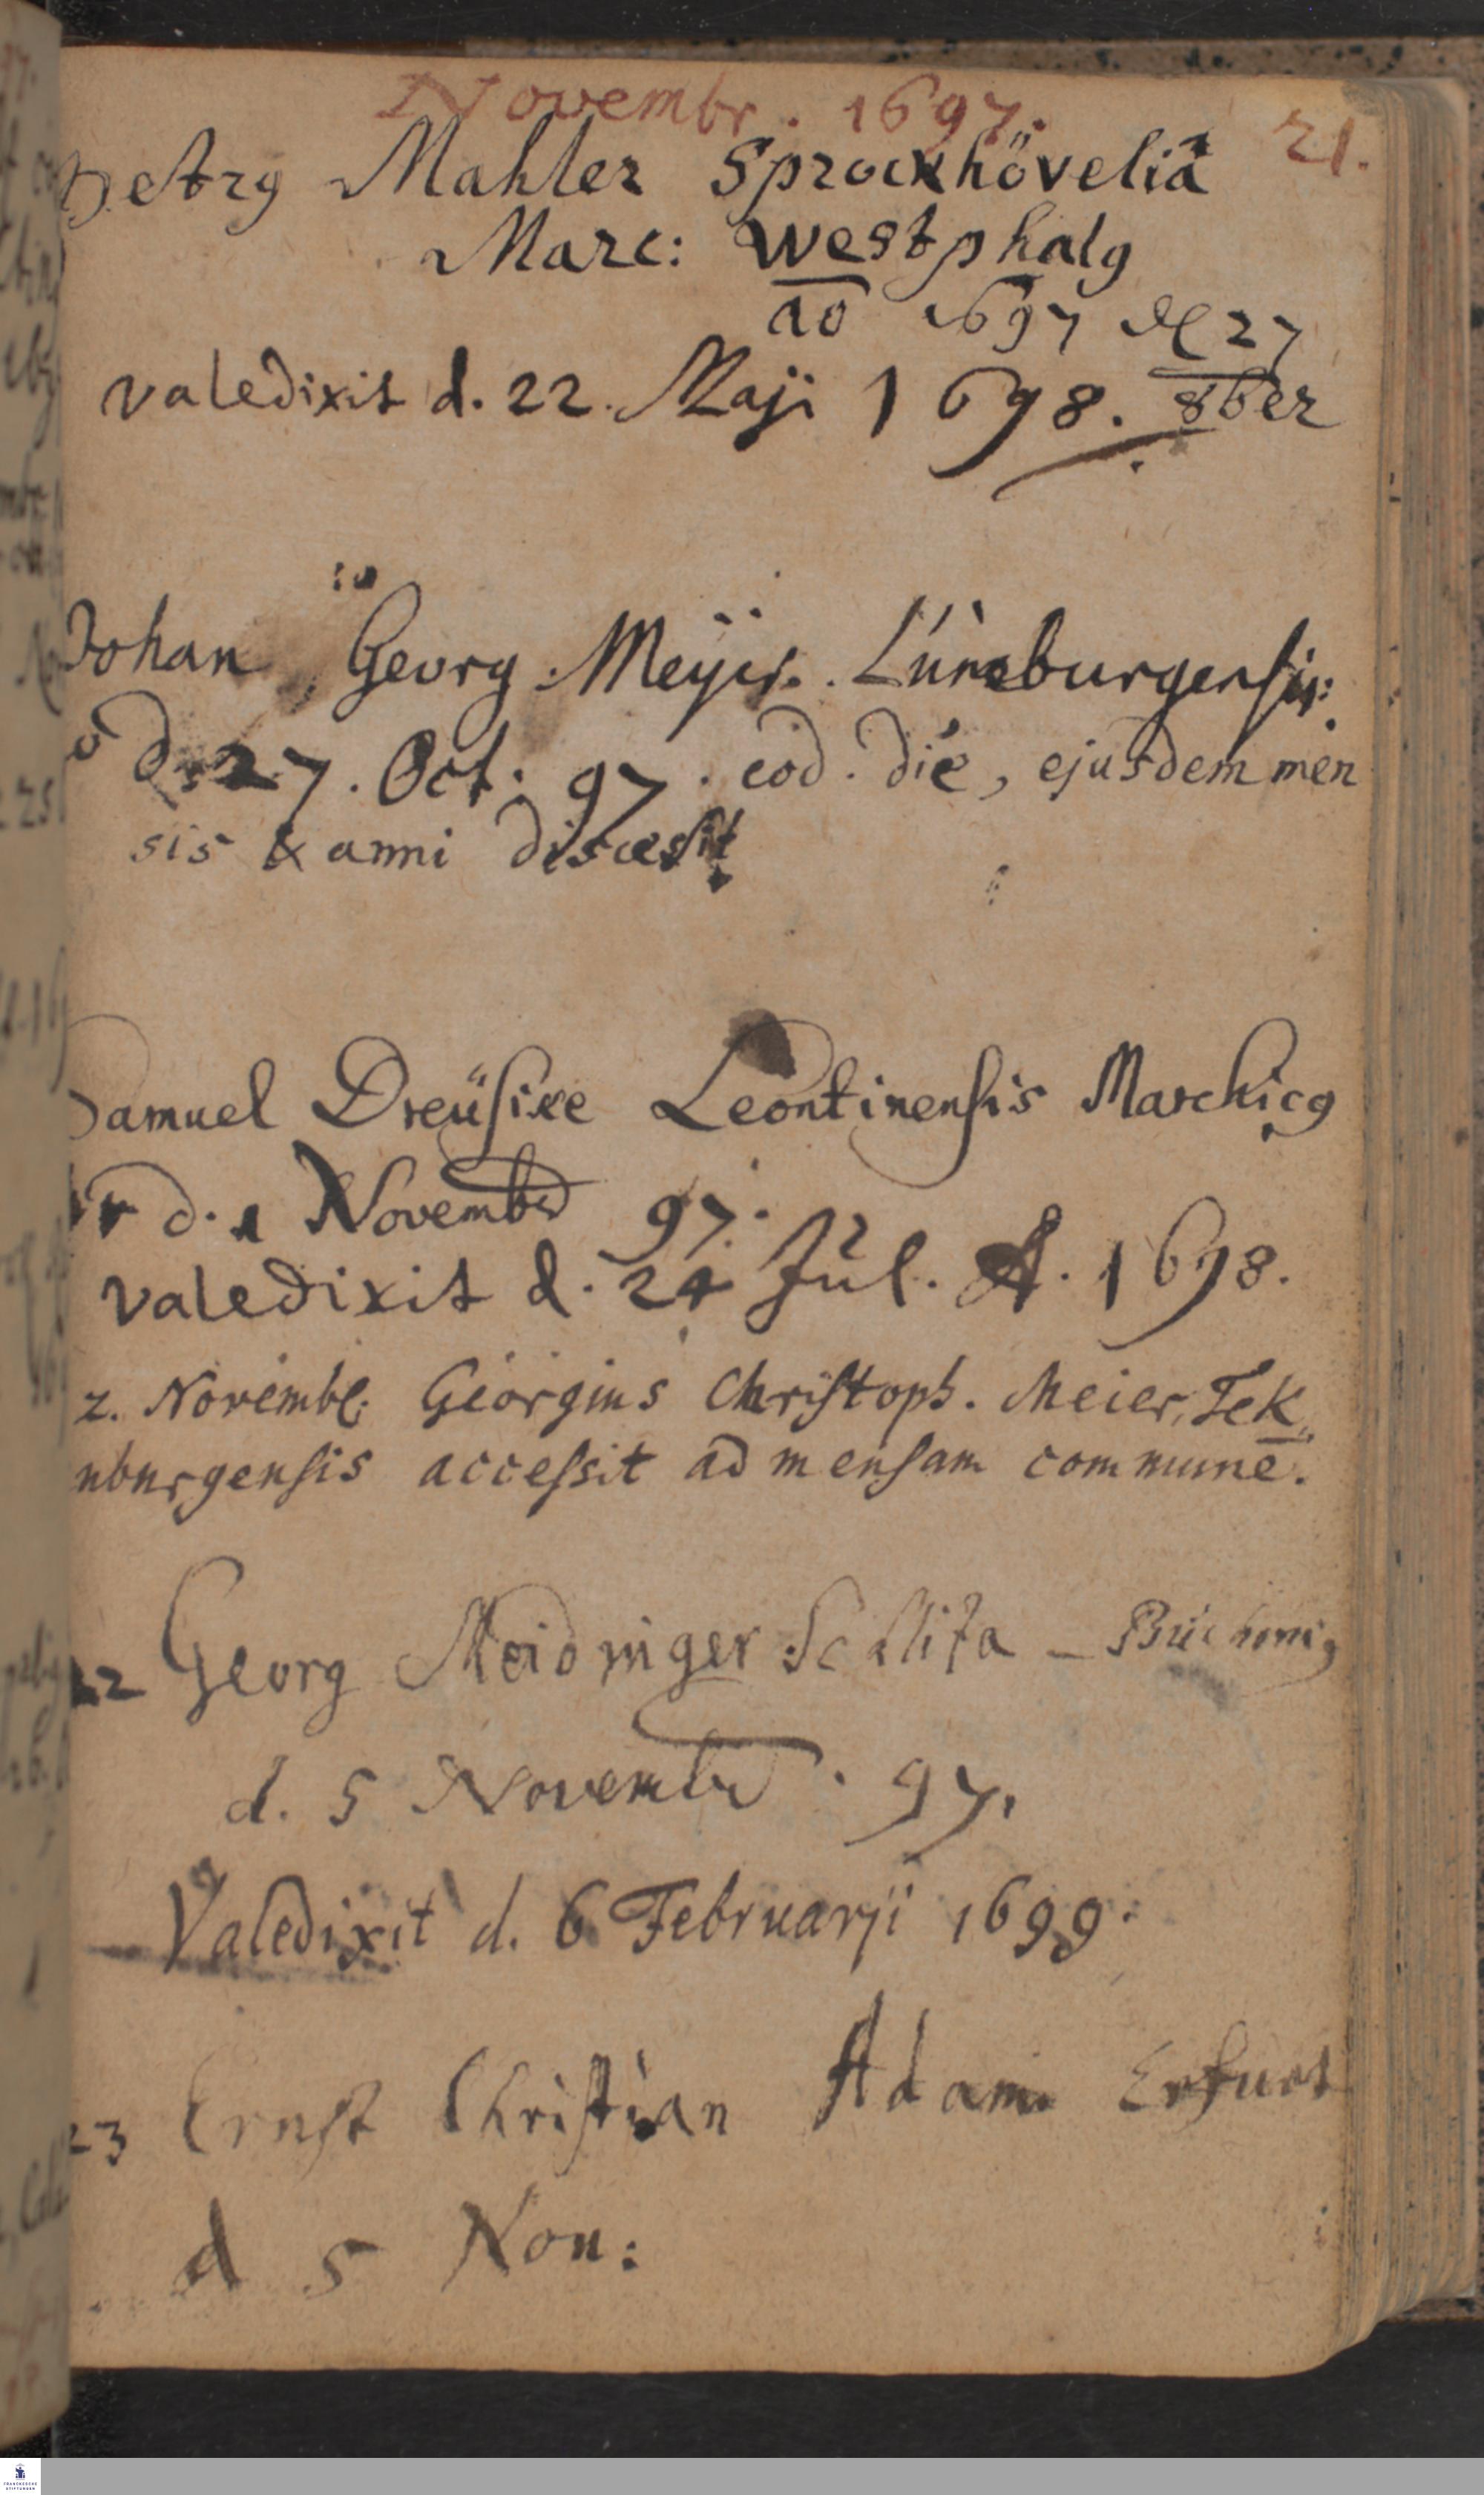 Novembr. 1697.
21.
Mahler Sprockhövelia
Marc: westphalg
ao 1697 27
valedixit d. 22. Maji 1698. 8ber
Johan Georg Meÿer. Lüneburgensis:
d. 27. Oct. 97. eod. die, ejusdem men
sis & anni discessit
Samuel Dreüsike Leontinensis Marchicg
d. 1 Novembr 97.
valedixit d. 24 Jul. A. 1698.
2. Novembr. Georgius Christoph. Meier, Tek„
nburgensis accessit ad mensam communē.
22 Georg Meidinger Schlita-
d. 5 Novembr. 97.
Valedixit d. 6 Februarji 1699.
23 Ernst Christian Adami Erfurt
d 5 Nou:
FRANCKESCHE STIFTUNGEN